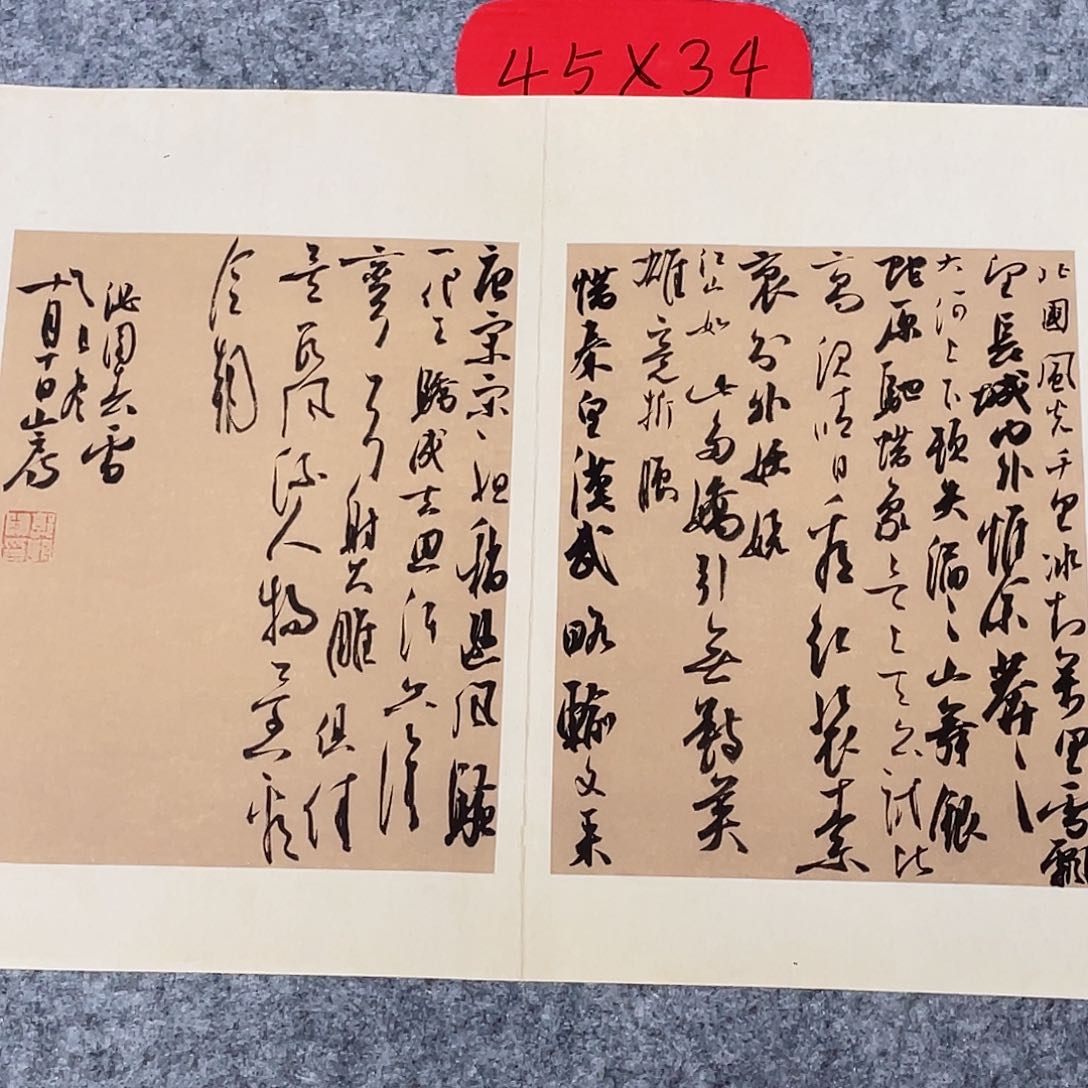 45X34
北國風光千里冰封萬里雪飄
望長城內外惟余莽〻
大河上下頓失滔〻山舞銀
蛇原馳蜡象欲与天公試比
高須晴日看紅裝素
裹分外妖嬈
江山如此多嬌引無數英
雄竞折腰
惜秦皇漢武略輸文采
唐宗宋祖稍遜風騷
一代天驕成吉思汗只識
彎弓射大雕俱往
矣数風流人物還看
今朝
沁園春雪
十月十日山房